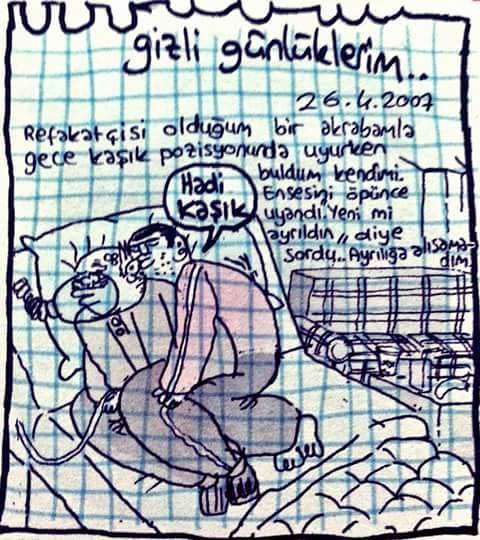 gizli günlüklerim..
26.4.2007
Refakatçisi olduğum bir akrabamla
gece kaşık pozisyonunda uyurken
buldum kendimi.
Ensesini öpünce
uyandı. "Yeni mi
ayrıldın" diye
sordu.. Ayrılığa alışama-
dım
Hadi
kaşık